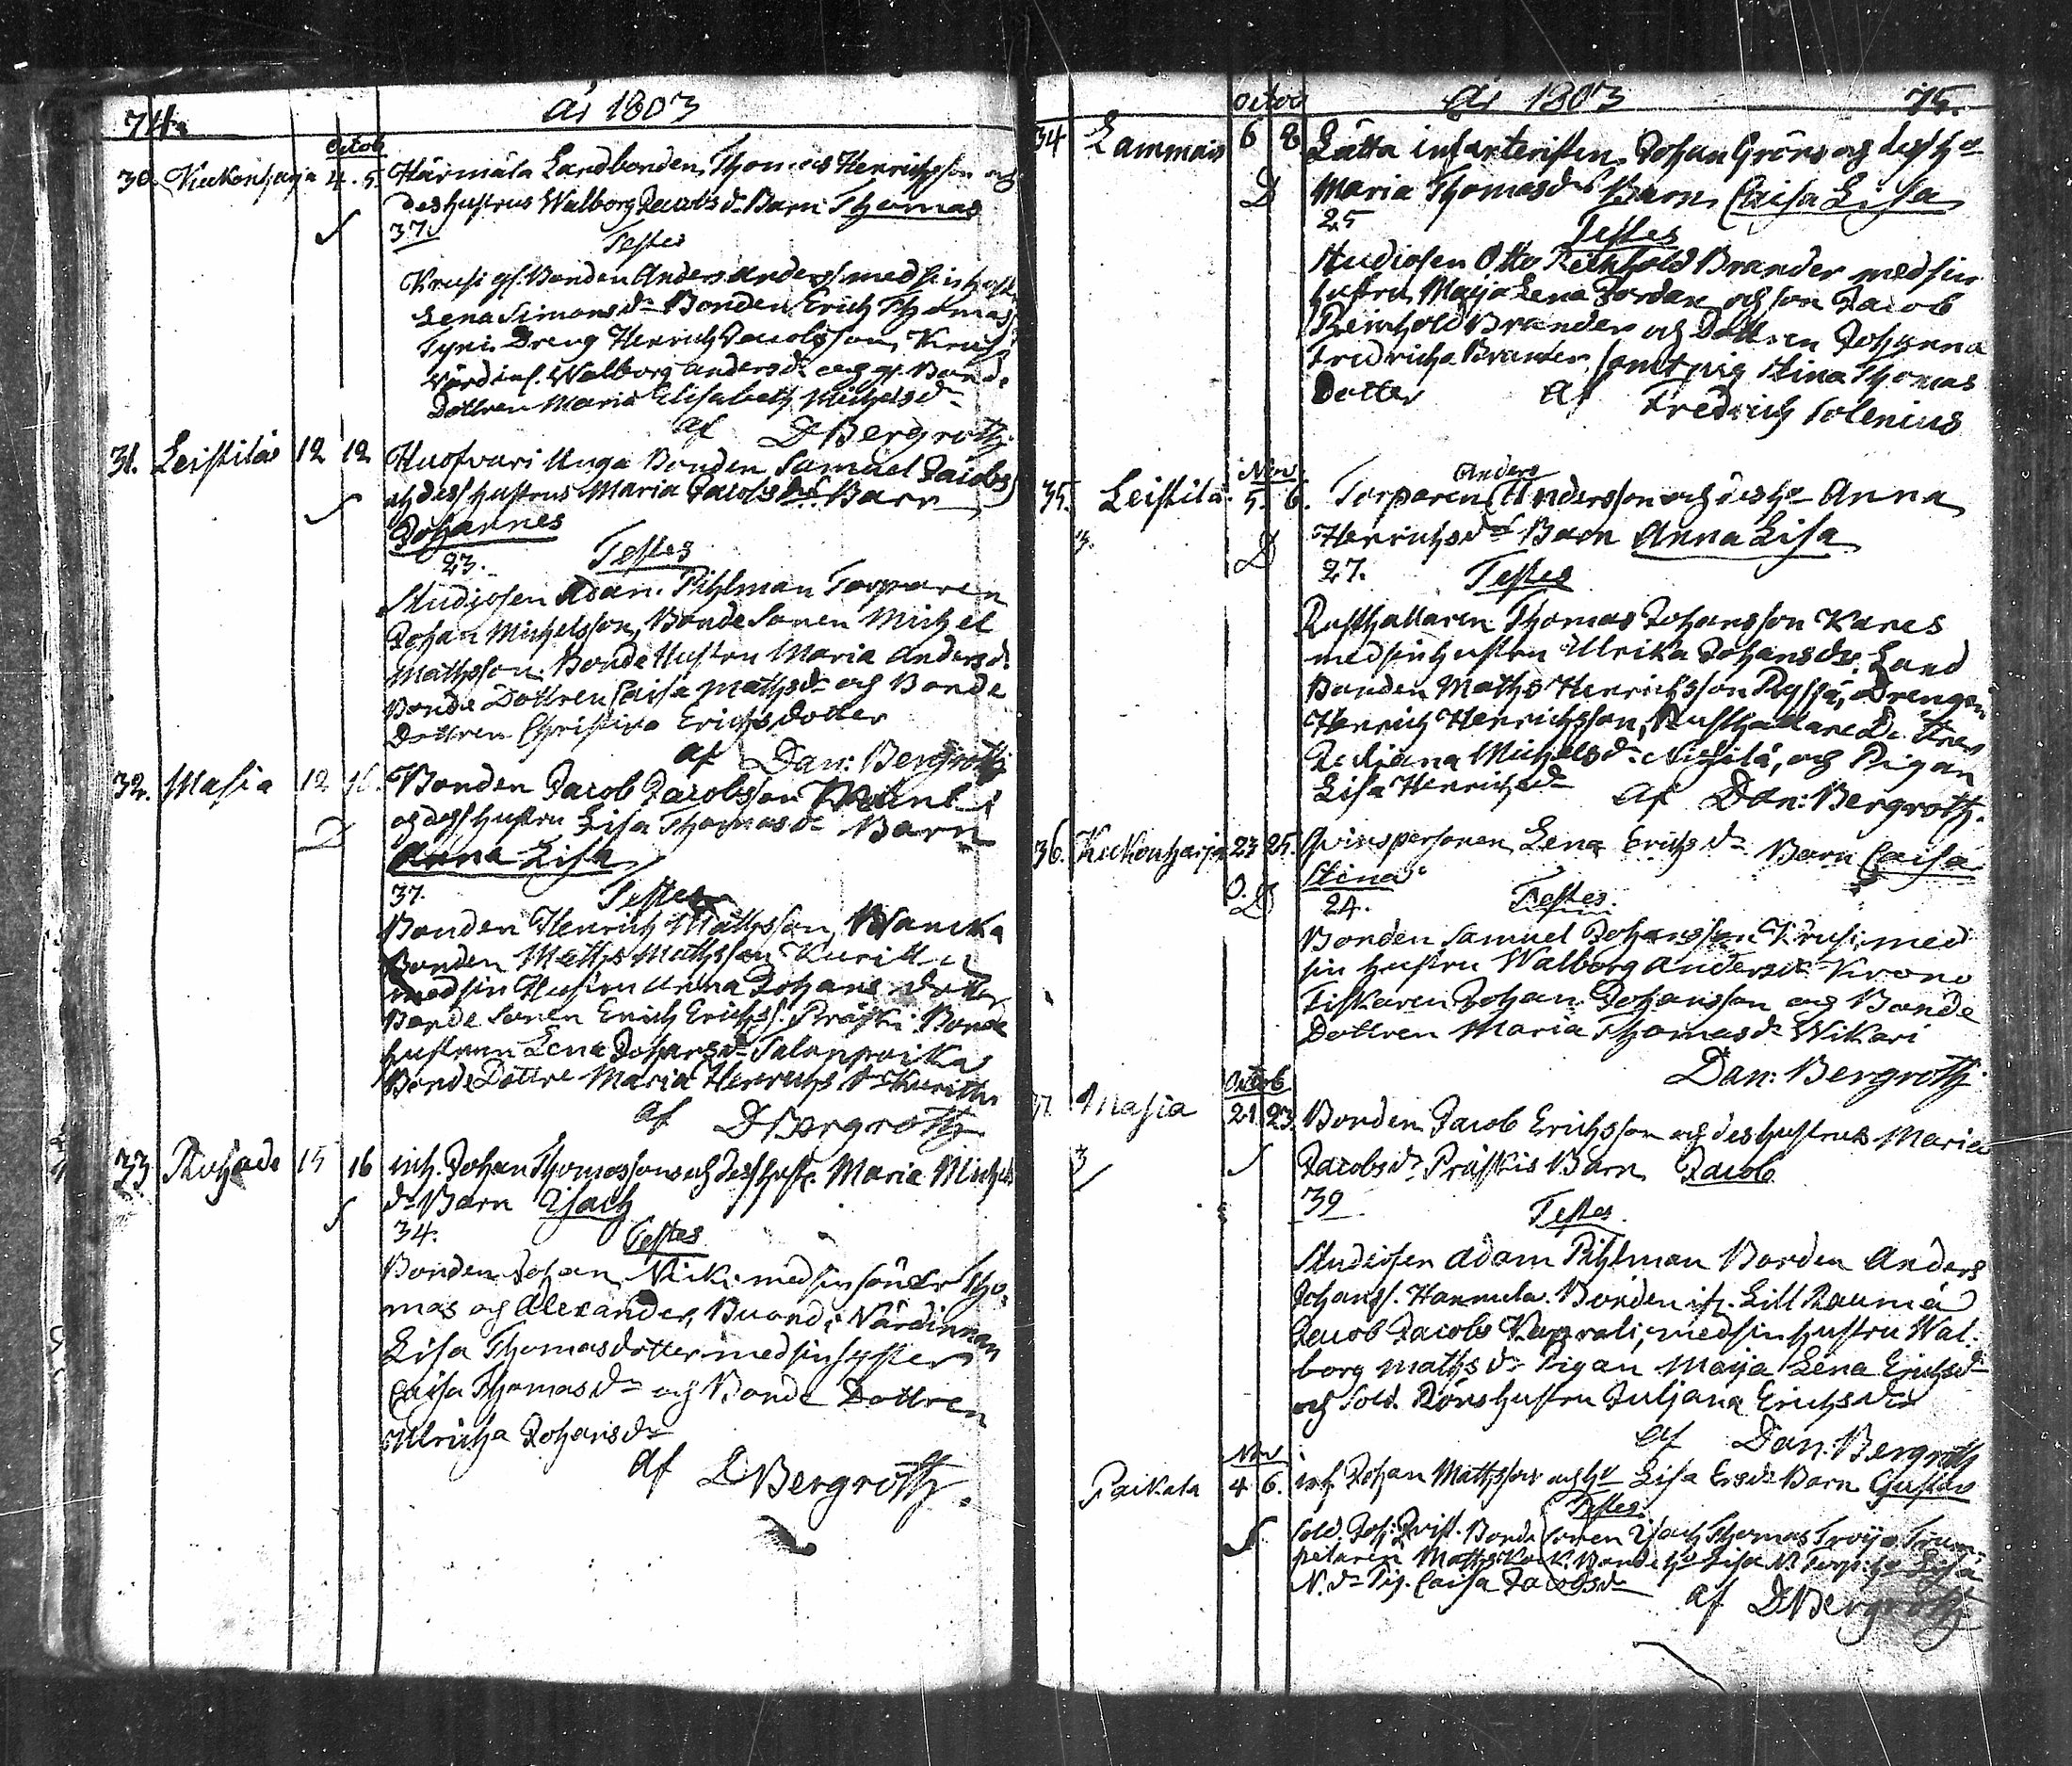 74.
År 1803
Octob
30. Kiukonharja 4. 5. Härmälä Landbonden Thomas Henrichsson och
des hustrus Walborg Jacobs d:r Barn Thomas
37.
Testes
Krusi gl. Bonden Anders Anderss. med sin hustr.
Lena Simons d:r Bonden Erich Thomass.
Tyni. Dreng Henrich Jacobsson, Krusi
värdinf. Walborg Anders d:r och gl. Bond.
Dottren Maria Elisabeth Michels d:r
af D Bergroth.
31. Leistila 12 12 Huofvari Unga Bonden Samuel Jacobss.
och dess hustrus Maria Jacobs d:rs Barn
Johannes
23.
Testes
Studiosen Adam Pihlman Torparen
Johan Michelsson, Bonde Sonen Michel
Mathsson. Bonde Hustru Maria Anders d:
Bonde Dottren Caisa Maths d:r och Bonde
Dottren Christina Erichsdotter
af Dan: Bergroth
32. Masia 12 16. Bonden Jacob Jacobsson
och dess hustru Lisa Thomas d:r Barn
D
Anna Lisa
37.
Testes
Bonden Henrich Mathsson
Bonden Maths Mathsson Kurittu
med sin Hustru Anna Johans dotter
Bonde Sonen Erich Erichss. Präski Bonde
hustrun Lena Johans d:r
Bonde Dottre Maria Henrichs d:r Kurittu
af D Bergroth
33 15 16 inh. Johan Thomassons och dess hustr. Maria Michels
d:r Barn Isach
34.
Testes
Bonden Johan Niki med sin söner Tho-
mas och Alexander, Värdinnan
Lisa Thomasdotter med sin syster
Caisa Thomas d:r och Bonde Dottren
Ulricha Johans d:r
af D Bergroth.
År 1803
75.
Octob
34 Lammais 6 8 Lätta infanteristen Johan Gröns och dess h:s
D
Maria Thomas d:rs Barn Caisa Lisa
25
Testes
Studiosen Otto Reinhold Brander med sin
hustru Maija Lena Jordan och son Jacob
Reinhold Brander och Dottren Johanna
Fredricha Brander samt pig Stina Thomas
Dotter af Fredrich Polenius
Nov.
Anders
35. Leistila 5. 6. Torparen Andersson och des h:s Anna
3.
D
Henrichs d:rs Barn Anna Lisa
27.
Testes
Rusthallaren Thomas Johansson Kares
med sin hustru Ulrika Johans d:r. Land
Bonden Maths Henrichsson Drengen
Henrich Henrichsson, Rusthallare
Michels d:r och Pigan
Lisa Henrichs d:r af Dan: Bergroth.
36. Kiukonharja 23 25. Qvinspersonen Lena Erichs d:r Barn Caisa
O. D
Stina
24.
Testes.
Bonden Samuel Johansson Krusi, med
sin hustru Walborg Anders d:r Krono
Fiskaren Johan Johansson och Bonde
Dottren Maria Thomas d:r Wikari
Dan: Bergroth.
Octob
37. Masia 21 23. Bonden Jacob Erichsson och des hustrus Maria
3
Jacobs d:r Präskis Barn Jacob
39
Testes.
Studiosen Adam Pihlman Bonden Anders
Johanss. Hannula. Bonden if. Lill Raumå
Jacob Jacobs Kaprali, med sin hustru Wal-
borg Maths d:r Pigan Maija Lena Erichs d:r
och Sold. Rörs hustru Juljana Erichs d:r
af Dan: Bergroth
Nov
Paikala 4 6. inh. Johan Mathsson och h:s Lisa Ers d:r Barn Gustav
Testes.
Sold. Joh: Qvist. Bonde Sonen Isach Thomas Troija Trum-
petaren Maths Bonde h:s Lisa N. Torp. h:s Lisa
N. d:r Pig. Caisa Jacobs d:r af D Bergroth